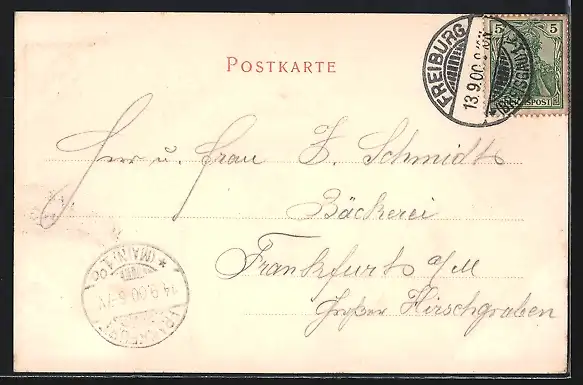 POSTKARTE
FREIBURG
13.9.00
5 5
REICHSPOST
Herr u. Frau Z. Schmidts
Bäckerei
Frankfurts a/M
Großer Hirschgraben
FRANKFURT
* (MAIN) 1
14.9.00